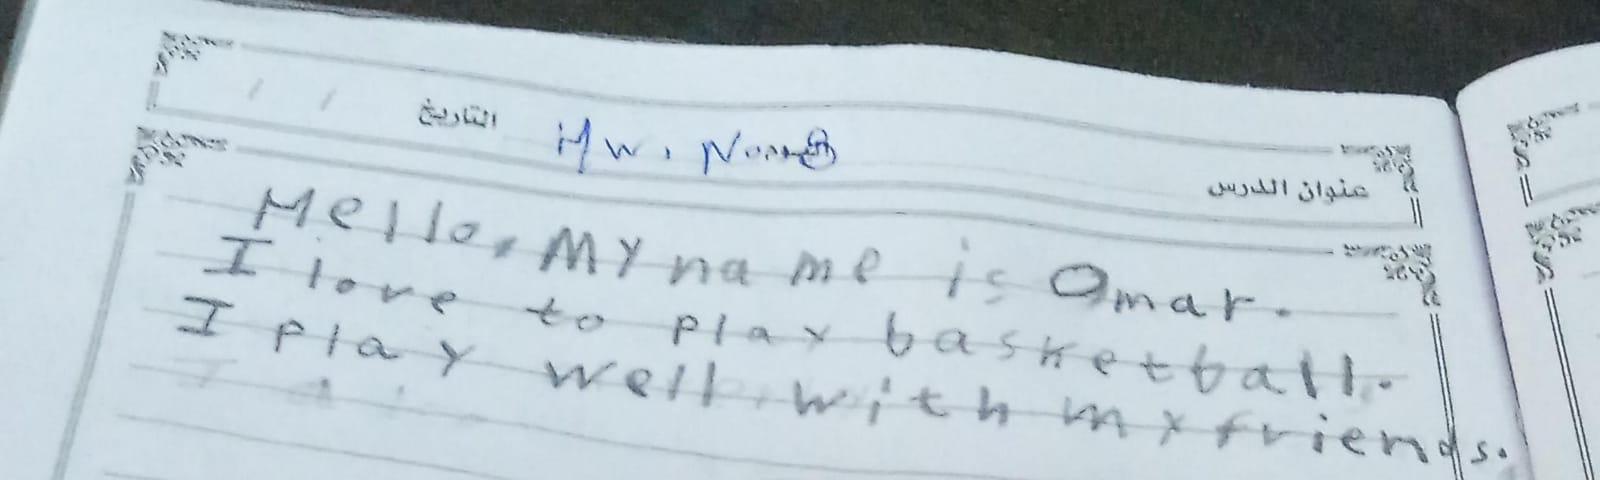 التاريخ / /
HW.
عنوان الدرس
Hello, My name is Omar.
I love to play basketball.
I play well with my friends.